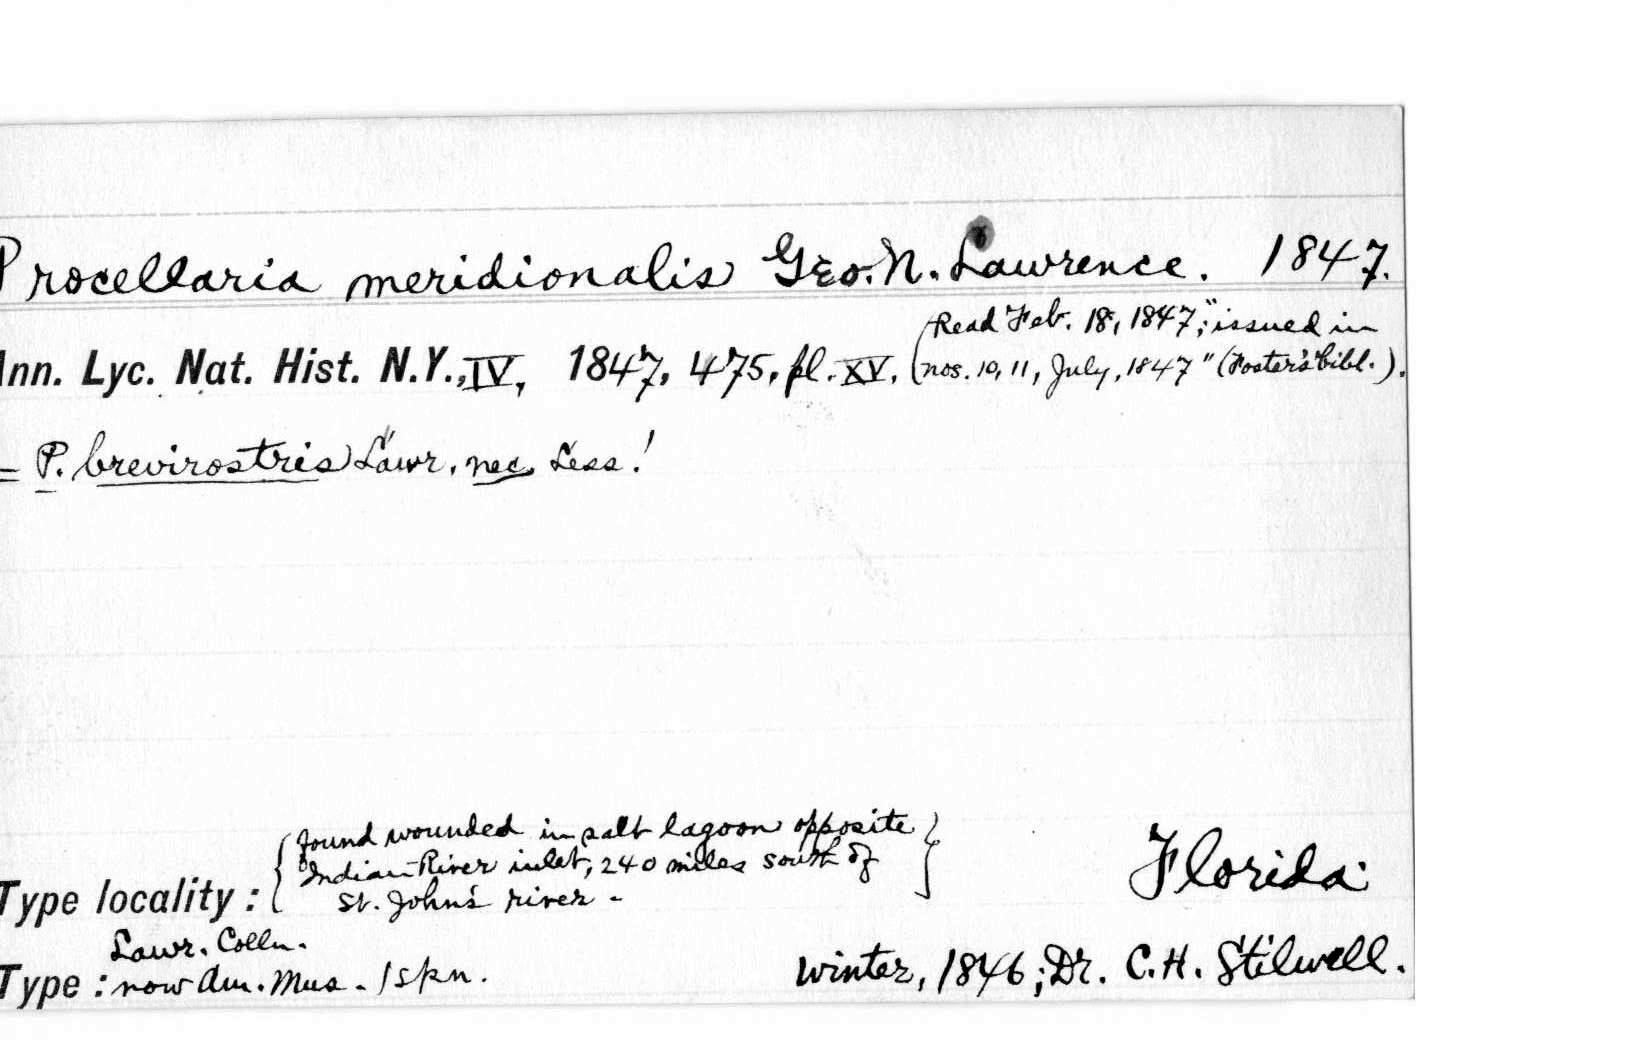 Procellaria meridionalis Geo. N. Lawrence. 1847.
Ann. Lyc. Nat. Hist. N.Y., IV, 1847, 475, pl. XV. (Read Feb. 18, 1847; "issued in
nos. 10, 11, July, 1847" (Foster's bibl.).
= P. brevirostris Lawr. nec Less!
Type locality: {found wounded in salt lagoon opposite
Indian River inlet, 240 miles south of
St. John's river -} Florida.
Lawr. Colln.
Type: now Am. Mus. - 1 spn. Winter, 1846; Dr. C. H. Stilwell.